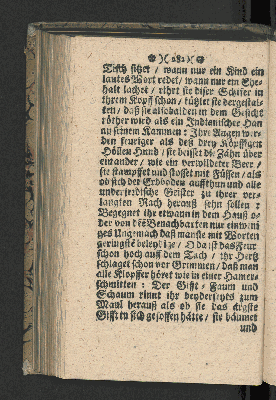 )( 282 )(
Tisch sitzet / wann nur ein Kind ein
lautes Wort redet / wann nur ein Ehe-
halt lachet / rihrt sie diser Schifer in
ihrem Kopff schon / kützlet sie dergestal-
ten / daß sie alsobald in dem Gesicht
röther wird als ein Indianischer Han
an seinem Kammen: Ihre Augen wer-
den feuriger als deß drey Köpffigen
Höllen Hund / sie beisst die Zähn über
einander / wie ein verwildter Beer /
sie stampffet und stosset mit Füssen / als
ob sich der Erdboden auffthun und alle
underirdische Geister zu ihrer ver-
langten Rach herauß sehn sollen:
Begegnet ihr etwann in dem Hauß o-
der von den Benachbarten nur ein wini-
ges Ungemach daß man sie mit Worten
geringst beleydige / O da ist das Feur
schon hoch auff dem Tach / ihr Hertz
schlaget schon vor Grimmen / daß man
alle Klopffer höret wie in einer Hamer-
schmitten: Der Gifft Faum und
Schaum rinnt ihr beyderseyts zum
Maul herauß als ob sie das ergste
Gifft in sich gesoffen hätte / sie bäumet
und